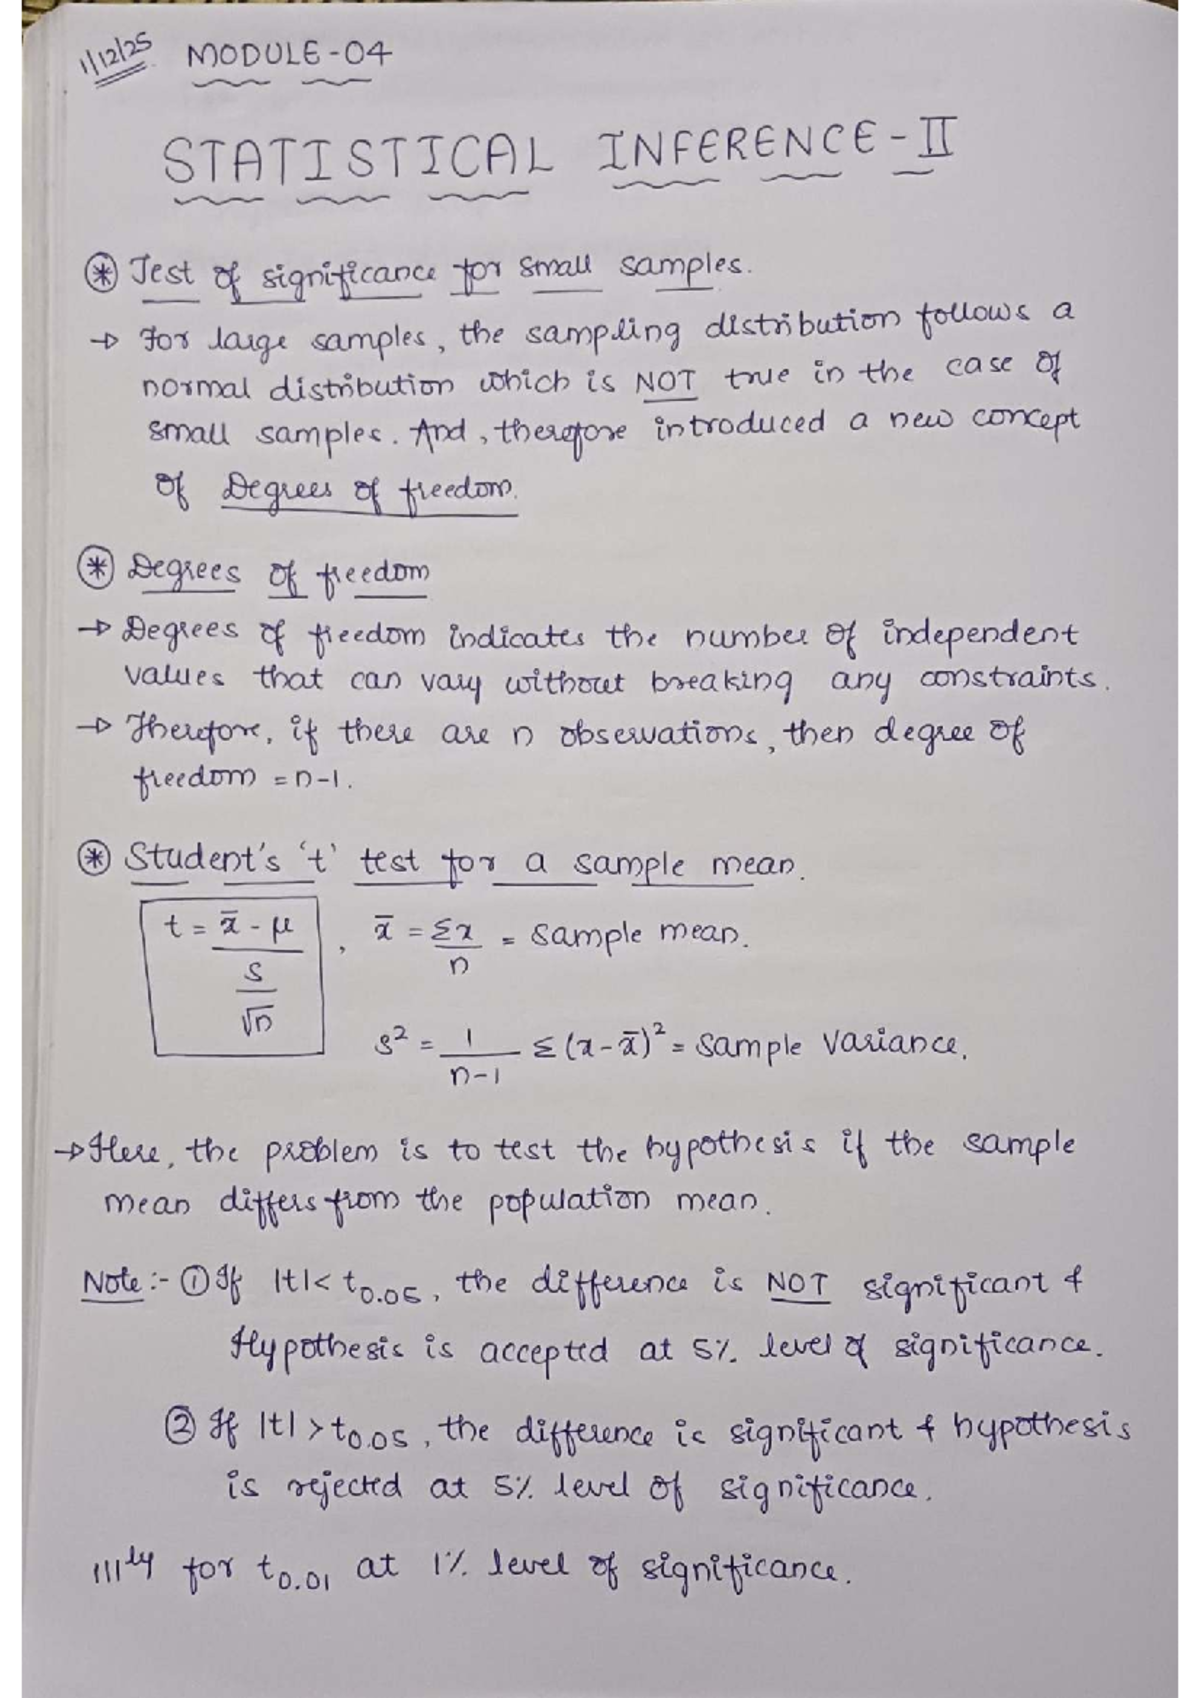 1/12/25 MODULE-04
STATISTICAL INFERENCE-II
* Test of significance for small samples.
→ For large samples, the sampling distribution follows a
normal distribution which is NOT true in the case of
small samples. And, therefore introduced a new concept
of Degrees of freedom.
* Degrees of freedom
→ Degrees of freedom indicates the number of independent
values that can vary without breaking any constraints.
→ Therefore, if there are n observations, then degree of
freedom = n-1.
* Student's 't' test for a sample mean.
t = (x̄ - μ) / (s/√n) , x̄ = Σx/n = sample mean.
s² = 1/(n-1) Σ(x-x̄)² = sample variance.
→ Here, the problem is to test the hypothesis if the sample
mean differs from the population mean.
Note:- ① If |t| < t0.05, the difference is NOT significant &
Hypothesis is accepted at 5% level of significance.
② If |t| > t0.05, the difference is significant & hypothesis
is rejected at 5% level of significance.
lllly for t0.01 at 1% level of significance.